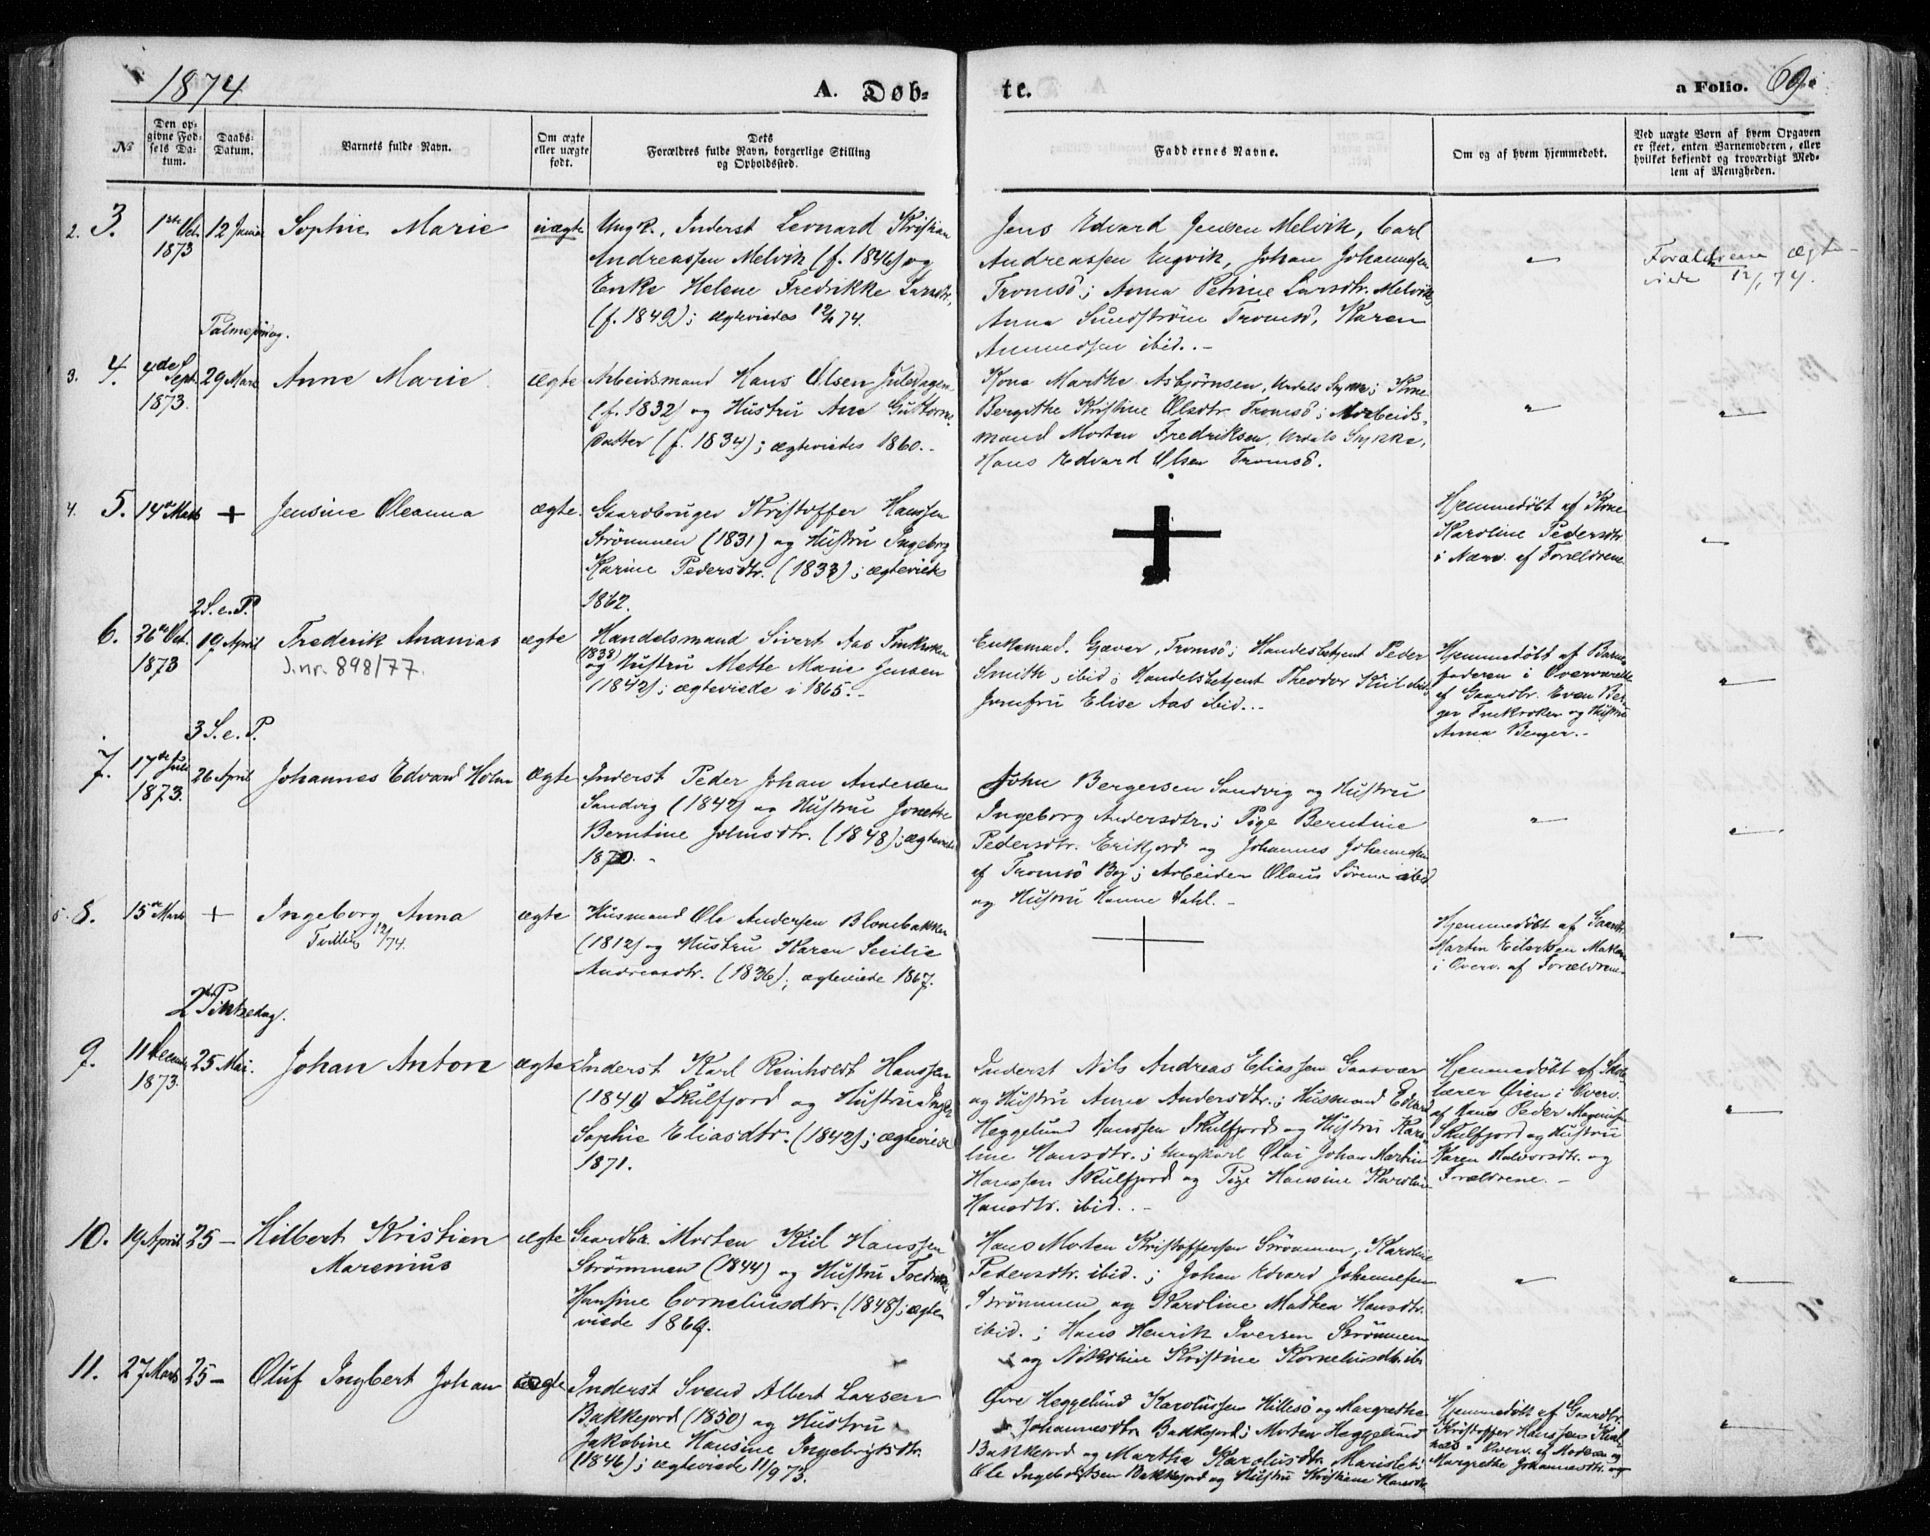 1874
A. Døb-
te.
a Folio. 69.
No
Den opgivne Fødsels Datum.
Daabs-Datum.
Barnets fulde Navn.
Om ægte eller uægte født.
Dets
Forældres fulde Navn, borgerlige Stilling
og Opholdssted.
Faddernes Navne.
Om og af hvem hjemmedøbt.
Ved uægte Børn af hvem Opgaven
er skeet, enten Barnemoderen, eller
hvilket bekjendt og troværdigt Med-
lem af Menigheden.
2. 3.
1ste Oct. 1873
12 Januar
Sophie Marie
uægte
Ungk., Inderst Leonard Kristian
Andreassen Melvik (f. 1846) og
Enke Helene Fredrikke Larsdtr.
(f. 1849); ægteviedes 12/1 74.
Jens Edvard Jensen Melvik, Carl
Andreassen Engvik, Johan Johannesen
Tromsö; Anna Petrine Larsdtr. Melvik,
Anna Sundström Tromsö, Karen
Amundsen ibid. -
"
Forældrene ægte-
viede 12/1 74.
Palmesöndag.
3. 4.
4de Sept. 1873.
29 Marts
Anne Marie
ægte
Arbeidsmand Hans Olsen Juledagen
(f. 1832) og Hustru Ane Guttorms-
datter (f. 1834); ægteviedes 1860. -
Kona Marthe Asbjørnsen, Urdals Stykke; Kone
Bergithe Kristine Olsdtr. Tromsö; Arbeids-
mand Morten Fredriksen, Urdals Stykke,
Hans Edvard Olsen Tromsö.
"
"
4. 5.
14de Marts
+
Jensine Oleanna
ægte.
Gaardbruger Kristoffer Hanssen
Strømmen (1831) og Hustru Ingeborg
Karine Pedersdtr. (1833); ægteviede
1862.
+
Hjemmedøbt af Kone
Karoline Pedersdtr.
i Nærv. af Forældrene
"
2 S. e. P.
6.
26de Oct. 1873
19 April
Frederik Ananias
J.nr. 898/77.
ægte
Handelsmand Sivert Aas Finkroken
(1838) og Hustru Mette Marie Jensen
(1842); ægteviede i 1865. -
Enkemad. Gjæver, Tromsö; Handelsbetjent Peder
Smith, ibid; Handelsbetjent Theodor Kiil ibid
Jomfru Elise Aas ibid. -
Hjemmedöbt af Barne-
faderen i Overværelse
af Gaardbr. Even Ber-
ger Finkroken og Hustru
Anna Berger. -
"
3 S. e. P.
7.
17de Juli 1873.
26 April
Johannes Edvard Holm
ægte
Inderst Peder Johan Andersen
Sandvig (1842) og Hustru Jonette
Berntine Johnsdtr. (1848); ægteviede
1870. -
John Bergersen Sandvig og Hustru
Ingeborg Andersdtr.; Pige Berntine
Pedersdtr. Erikfjord og Johannes Johannesen
af Tromsö By; Arbeider Olaus Sörens ibid
og Hustru Hanne Dahl. -
"
"
5. 8.
15de Marts
+
Ingeborg Anna
ægte
Husmand Ole Andersen Blommebakken
(1812) og Hustru Karen Secilie
Andreasdtr. (1836); ægteviede 1867.
+
Hjemmedøbt af Gaardbr.
Martin Eilertsen
i Overv. af Forældrene
"
2den Pintsedag.
9.
11 Decemb. 1873.
25 Mai.
Johan Anton
ægte
Inderst Karl Reinholdt Hanssen
(1841) Skulfjord og Hustru Inger
Sophie Eliasdtr. (1842); ægteviede
1871.
Inderst Nils Andreas Eliassen Gaasvær
og Hustru Anne Andersdtr.; Husmand Edvard
Heggelund Hanssen Skulfjord og Hustru Karo-
line Hansdtr.; Ungkarl Olai Johan Martin
Hanssen Skulfjord og Pige Hansine Karoline
Hansdtr. ibid. -
Hjemmedøbt af Sko-
lærer Öien i Overv.
af Hans Peder Magnussen
Skulfjord og Hustru
Karen Halvorsdtr. og
Forældrene. -
"
10.
19 April
25 -
Hilbert Kristian
Marenius
ægte
Gaardbr. Morten Kiil Hanssen
Strømmen (1844) og Hustru Fredrikke
Hansine Corneliusdtr. (1848); ægte-
viede 1869.
Hans Morten Kristoffersen Strømmen, Karoline
Pedersdtr. ibid.; Johan Edvard Johannesen
Strømmen og Karoline Mathea Hansdtr.
ibid.; Hans Henrik Iversen Strømmen
og Nikoline Kristine Korneliusdtr. ibi
"
"
11.
27 Marts
25 -
Oluf Ingbert Johan
ægte
Inderst Svend Albert Larsen
Bakkejord (1850) og Hustru
Jakobine Hansine Ingebrigtsdtr.
(1846); ægteviede 11/9 73.
Øvre Heggelund Karolussen Hillesö og Margrethe
Johannesdtr. Bakkejord; Morten Heggelund
Bakkejord og Martha Karolusdtr.
Ole Ingebrigtsen Bakkejord og Hustru Kristiane Hansdtr.
Hjemmedøbt af Gaardbr.
Kristoffer Hanssen
i Overv. af Moderen og
Margrethe Johannesdtr.
"